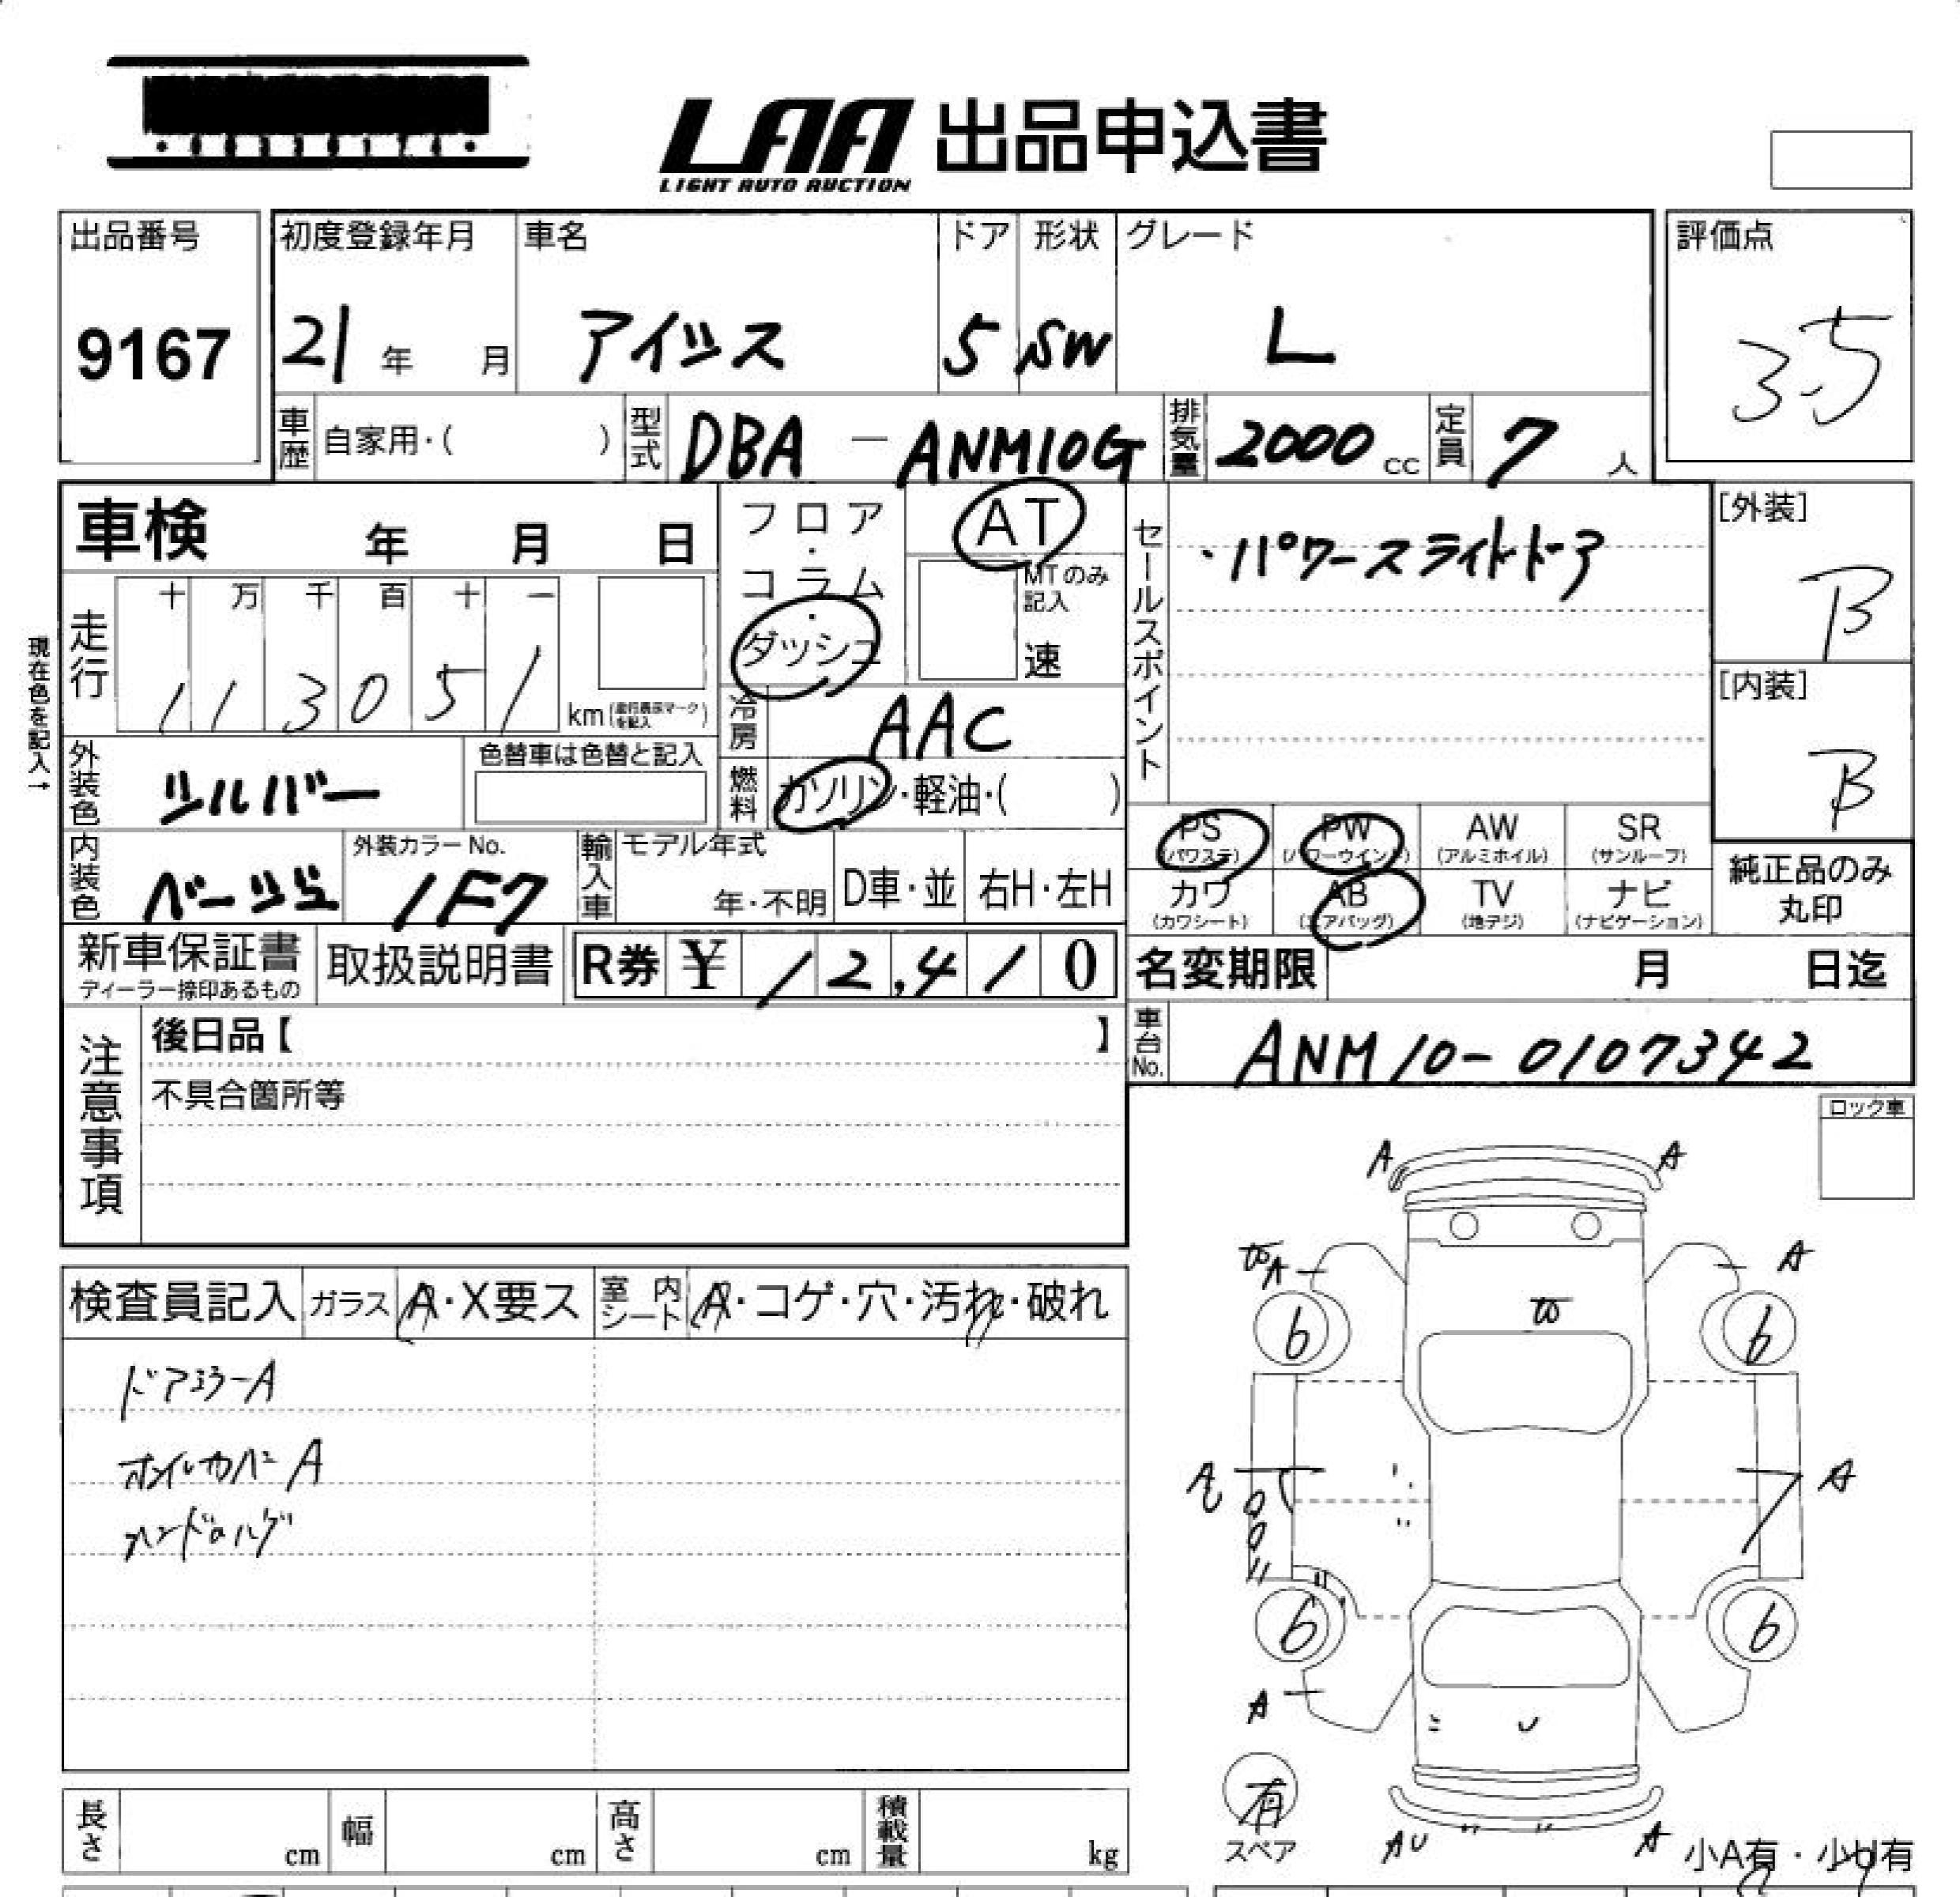 LAA 出品申込書
LIGHT AUTO AUCTION
出品番号
9167
初度登録年月
21 年 月
車名
アイシス
ドア
5
形状
SW
グレード
L
評価点
3.5
車歴 自家用・( )
型式 DBA - ANM10G
排気量 2000 cc
定員 7 人
車検 年 月 日
フロア・コラム・ダッシュ
AT
MTのみ記入
速
セールスポイント
・パワースライドドア
[外装]
B
[内装]
B
現在色を記入→
走行
十 万 千 百 十 一
1 1 3 0 5 1
km (走行表示マークを記入)
冷房 AAC
燃料 ガソリン・軽油・( )
外装色 シルバー
色替車は色替と記入
内装色 ベージュ
外装カラーNo.
1F7
輸入車
モデル年式
年・不明
D車・並
右H・左H
PS (パワステ)
PW (パワーウインド)
AW (アルミホイル)
SR (サンルーフ)
カワ (カワシート)
AB (エアバッグ)
TV (地デジ)
ナビ (ナビゲーション)
純正品のみ
丸印
新車保証書
ディーラー捺印あるもの
取扱説明書
R券 ¥ 12,410
名変期限 月 日迄
注意事項
後日品【 】
不具合箇所等
車台No. ANM10-0107342
ロック車
検査員記入
ガラス A・X要ス
室内シート A・コゲ・穴・汚れ・破れ
ドアミラーA
ホイルカバーA
A A
A A
6 6
A A
6 6
A
有
スペア
AU A
小A有・小U有
長さ cm
幅 cm
高さ cm
積載量 kg